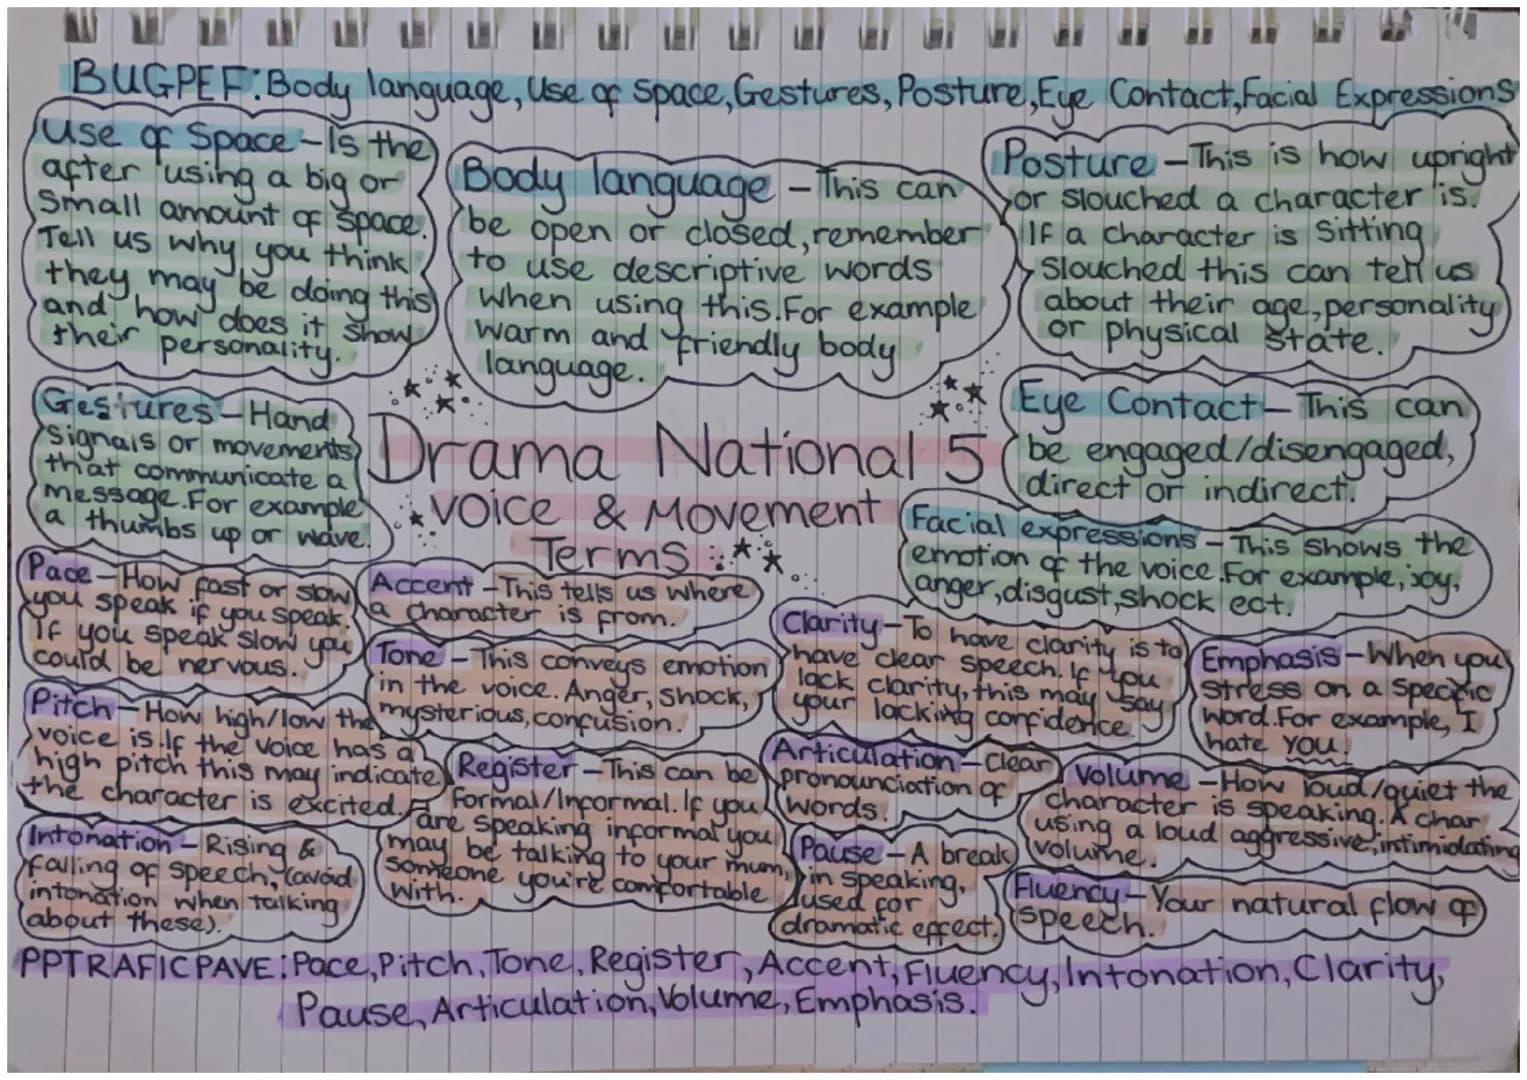 BUGPEF: Body language, Use of Space, Gestures, Posture, Eye Contact, Facial Expressions
Use of Space - Is the
after using a big or
small amount of space.
Tell us why you think
they may be doing this
and how does it show
their personality.
Body language - This can
be open or closed, remember
to use descriptive words
when using this. For example
warm and friendly body
language.
Posture - This is how upright
or slouched a character is.
If a character is sitting
slouched this can tell us
about their age, personality
or physical state.
Gestures - Hand
signals or movements
that communicate a
message. For example
a thumbs up or wave.
Drama National 5
Voice & Movement
Terms
Eye Contact - This can
be engaged/disengaged,
direct or indirect.
Facial expressions - This shows the
emotion of the voice. For example, joy,
anger, disgust, shock ect.
Pace - How fast or slow
you speak if you speak.
If you speak slow you
could be nervous.
Accent - This tells us where
a character is from.
Tone - This conveys emotion
in the voice. Anger, shock,
mysterious, confusion.
Clarity - To have clarity is to
have clear speech. If you
lack clarity, this may say
your lacking confidence.
Emphasis - When you
stress on a specific
word. For example, I
hate you.
Pitch - How high/low the
voice is. If the voice has a
high pitch this may indicate
the character is excited.
Register - This can be
formal/Informal. If you
are speaking informal you
may be talking to your mum,
someone you're comfortable
with.
Articulation - Clear
pronounciation of
words.
Volume - How loud/quiet the
character is speaking. A char
using a loud aggressive, intimidating
volume.
Intonation - Rising &
falling of speech, (avoid
intonation when talking
about these).
Pause - A break
in speaking,
used for
dramatic effect.
Fluency - Your natural flow of
speech.
PPTRAFICPAVE: Pace, Pitch, Tone, Register, Accent, Fluency, Intonation, Clarity,
Pause, Articulation, Volume, Emphasis.